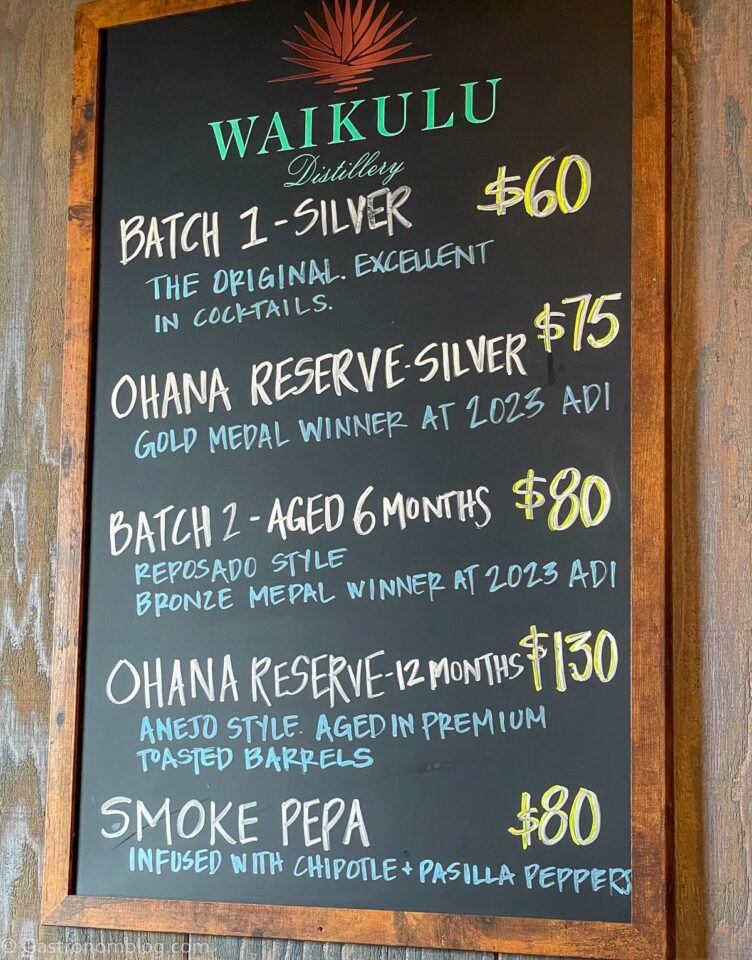 WAIKULU
Distillery
BATCH 1 - SILVER $60
THE ORIGINAL. EXCELLENT
IN COCKTAILS.
OHANA RESERVE-SILVER $75
GOLD MEDAL WINNER AT 2023 ADI
BATCH 2 - AGED 6 MONTHS $80
REPOSADO STYLE
BRONZE MEDAL WINNER AT 2023 ADI
OHANA RESERVE-12 MONTHS $130
ANEJO STYLE. AGED IN PREMIUM
TOASTED BARRELS
SMOKE PEPA $80
INFUSED WITH CHIPOTLE + PASILLA PEPPERS
© Gastronomblog.com